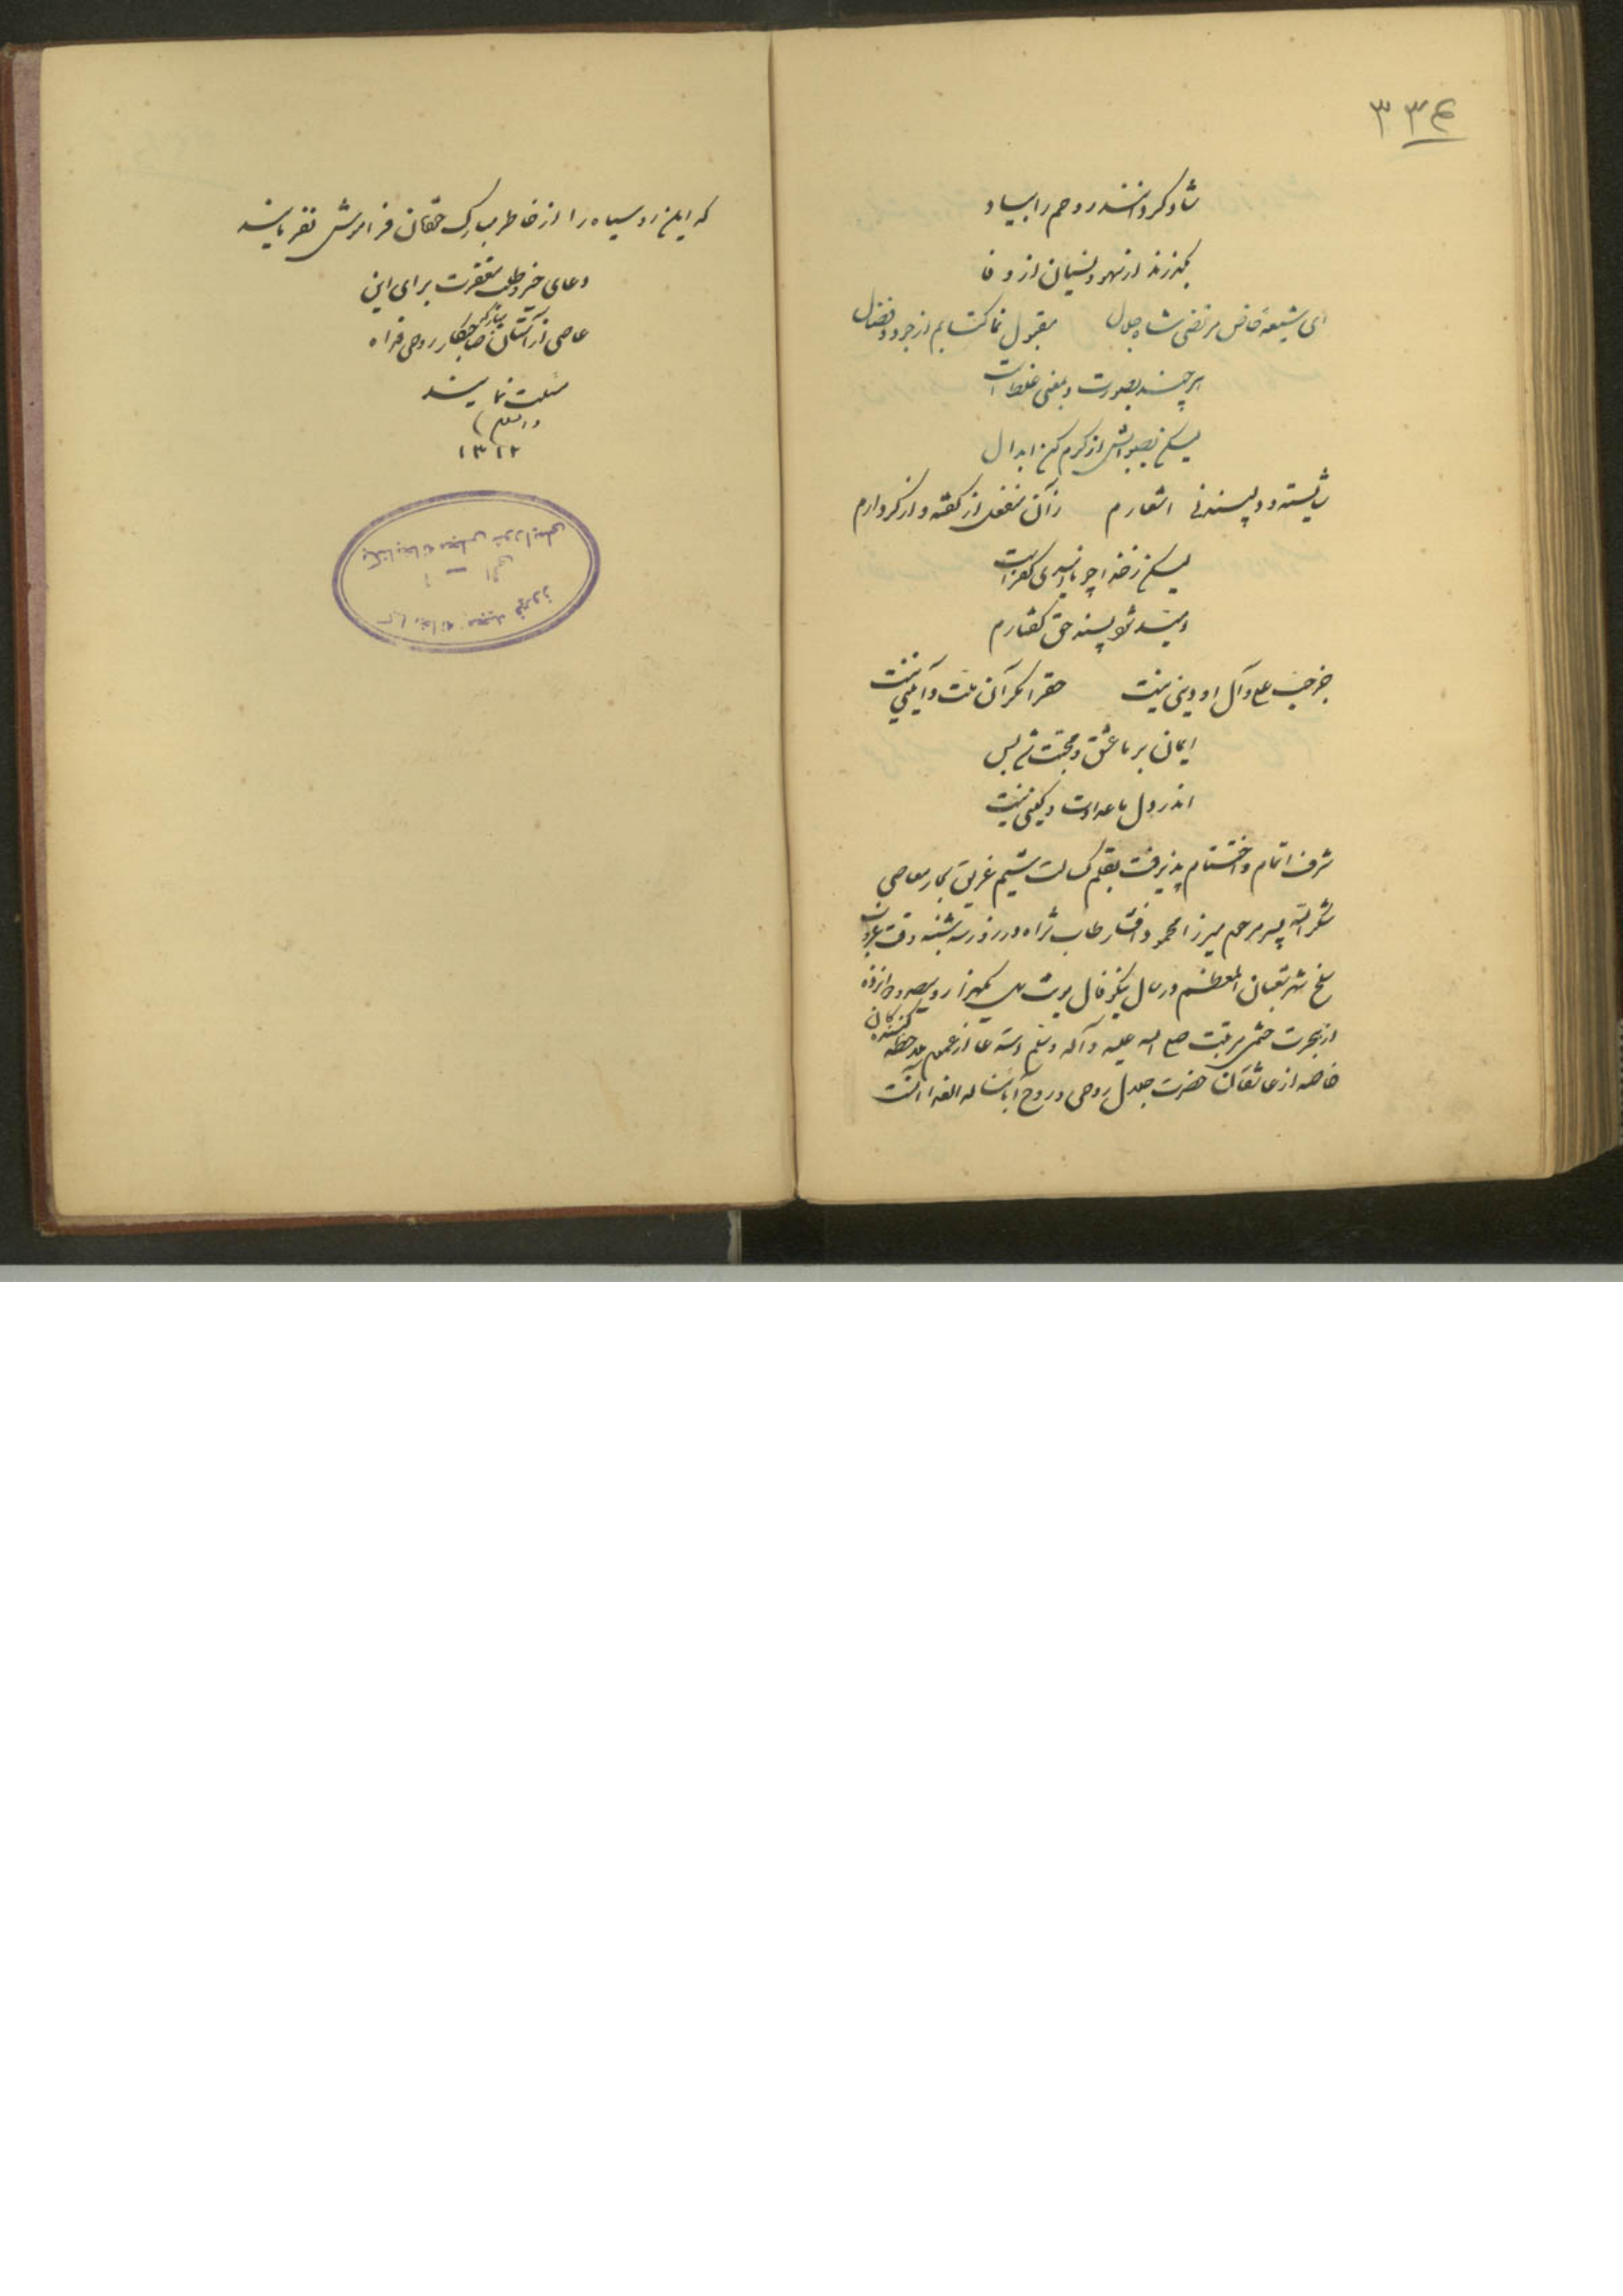 ۳۳۴
شاد گردانند روحم را بیاد
بگذرند از سهو و نسیان از وفا
ای شیعهٔ خاص مرتضی شاه جلال مقبول نما کتابم از جود و فضال
هر چند بصورت و بمعنی غلط است
لیکن بصوابش از کرم کن ابدال
شایسته و دلپسند نی اشعارم زآن منفعل از گفته و از کردارم
لیکن ز خدا چو ناامیدی کفر است
امید شود پسند حق گفتارم
جز حب علی و آل او دینی نیست حقرا مگر آن ملت و آیینی نیست
ایمان بر ما عشق و محبت شد بس
اندر دل ما عداوت و کینی نیست
شرف اتمام و اختتام پذیرفت بقلم کسالت شیم غریق بحار معاصی
شکرالله پسر مرحوم میرزا محمود افشار طاب ثراه در روز سه شنبه وقت غروب
سلخ شهر شعبان المعظم در سال نیکو فال یکهزار و سیصد و دوازده
از هجرت ختمی مرتبت صلی الله علیه و آله و سلم استدعا از عموم ملاحظه کنندگان
خاصه از عاشقان حضرت جلال روحی و روح آبائنا له الفدا آنست
که این رو سیاه را از خاطر مبارک حقشان فراموش نفرمایند
دعای خیر و طلب مغفرت برای این
عاصی از آستان مبارکه صاحبکار روحی فداه
مسئلت نمایند
والسلام
۱۳۱۲
کتابخانه مجلس شورای ملی